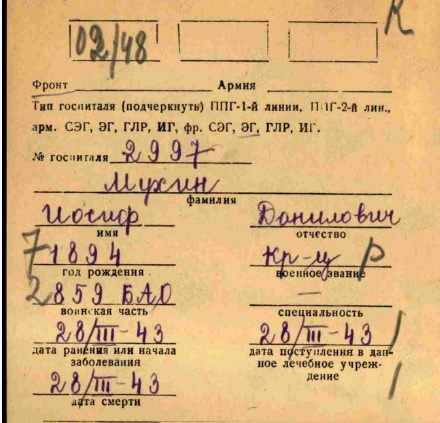 К
02/48
Фронт Армия
Тип госпиталя (подчеркнуть) ППГ-1-й линии, ППГ-2-й лин.,
арм. СЭГ, ЭГ, ГЛР, ИГ, фр. СЭГ, ЭГ, ГЛР, ИГ.
№ госпиталя 2997
Мухин
фамилия
Иосиф Данилович
имя отчество
7 1894 Кр-ц р
год рождения военное звание
2 859 БАО —
воинская часть специальность
28/III-43 28/III-43
дата ранения или начала дата поступления в дан-
заболевания ное лечебное учреж-
дение
28/III-43
дата смерти